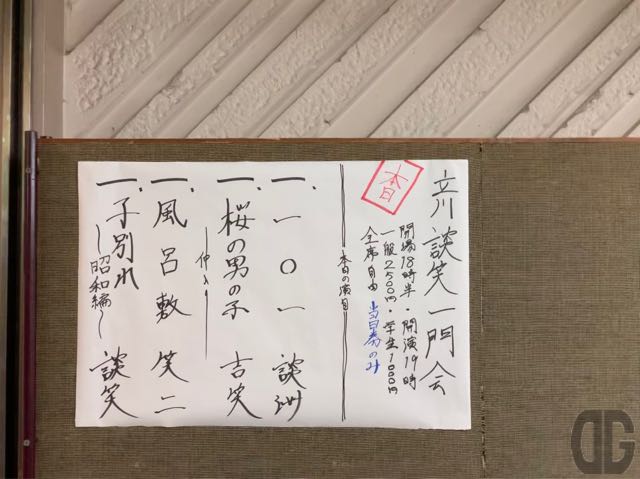 立川談笑一門会
本日
開場18時半・開演19時
一般2500円・学生1000円
全席自由 当日券のみ
本日の演目
一、一〇一 談洲
一、桜の男の子 吉笑
仲入り
一、風呂敷 笑二
一、子別れ 〜昭和編〜 談笑
DG